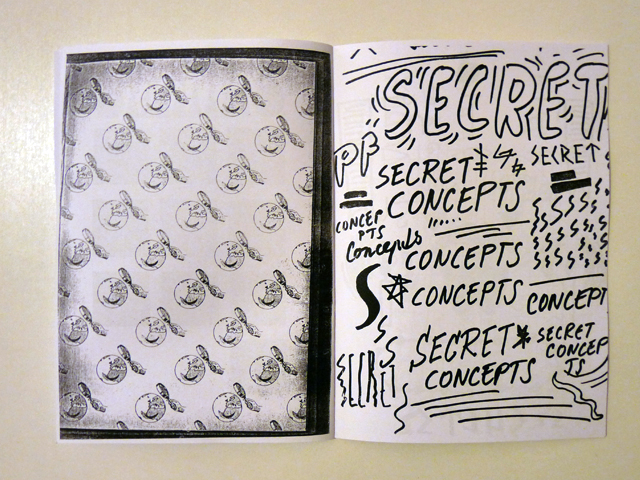 SECRET
PF
SECRET
SECRET
CONCEPTS
CONCEP
PTS
Concepts
CONCEPTS
CONCEPTS
CONCEPT
SECRET
SECRET
CONCEP
TS
SECRET
CONCEPTS